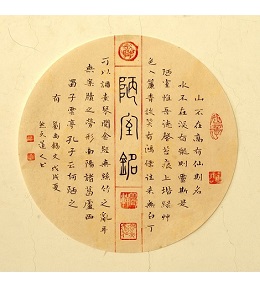 山不在高有仙則名
水不在深有龍則靈斯是
陋室惟吾德馨苔痕上階綠草
色入簾青談笑有鴻儒往來無白丁
陋室銘
可以調素琴閱金經無絲竹之亂耳
無案牘之勞形南陽諸葛廬西
蜀子雲亭孔子云何陋之
有 劉禹錫文戊戌夏
道人